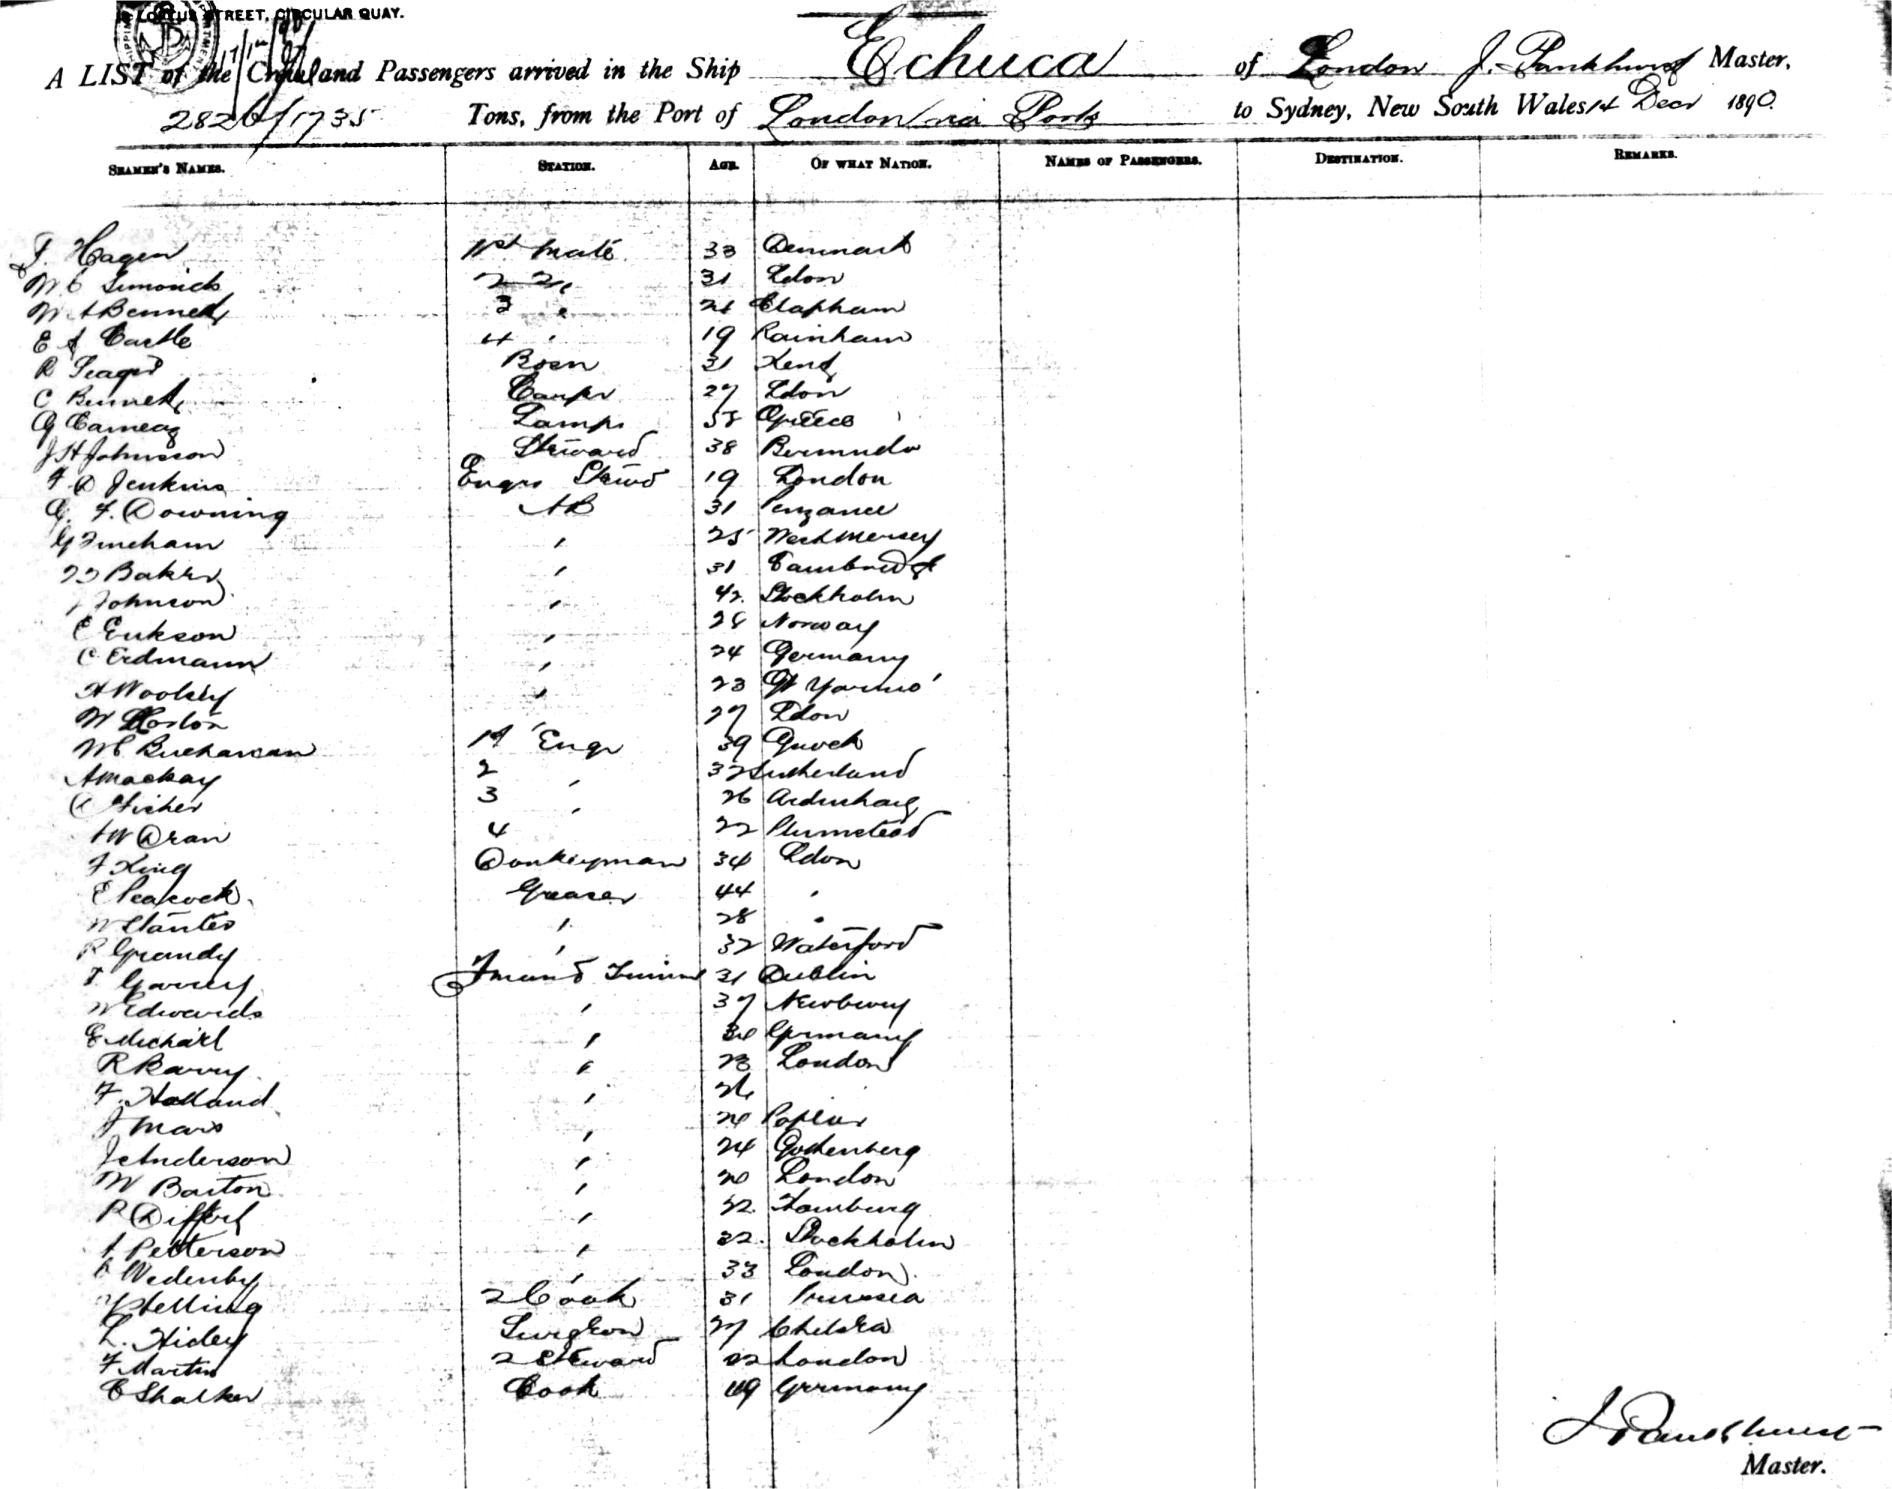 LOFTUS STREET, CIRCULAR QUAY.
A LIST of the Crew and Passengers arrived in the Ship Echuca of London J. Pankhurst Master,
2826/1735 Tons, from the Port of London via Ports to Sydney, New South Wales 14 Decr 1890.
SEAMEN'S NAMES. STATION. AGE. OF WHAT NATION. NAMES OF PASSENGERS. DESTINATION. REMARKS.
Hagen 1st Mate 33 Denmark
W C Simonids 2 31 Ldon
W A Bennett 3 " 21 Clapham
E A Castle 4 " 19 Rainham
R Seager Bosn 31 Kent
C Bennett Carpr 27 Ldon
G Carneag Lamps 58 Greece
J H Johnson Steward 38 Bermuda
F D Jenkins Engrs Stewd 19 London
G. F. Downing AB 31 Penzance
G Fincham " 25 West Mersey
Baker " 31 Cambridge
J Johnson " 42 Stockholm
E Erikson " 28 Norway
C Erdmann " 24 Germany
A Woolsey " 23 Gt Yarmo'
W Horton 27 Ldon
W C Buchanan 1st Engr 39 Quoch
A Mackay 2 " 32 Sutherland
A Fisher 3 " 26
A W Oran 4 22 Plumstead
F King Donkeyman 34 Ldon
E Peacock Greaser 44 "
W Stantes " 28 "
P Grandy " 32 Waterford
T Garvey Fman & Trimr 31 Dublin
W Edwards " 37 Newbury
E Michael " 30 Germany
R Barry " 23 London
F. Holland " 26
J Mars " 20 Poplar
J Anderson " 24 Gothenberg
W Barton " 20 London
R Difford " 22 Hamburg
A Petterson " 22. Stockholm
C Wedenby " 33 London
Stelling 2 Cook 31 Prussia
L. Hidey Surgeon 27 Chelsea
F Martin 2 Steward 22 London
C Shalker Cook 49 Germany
J Pankhurst
Master.